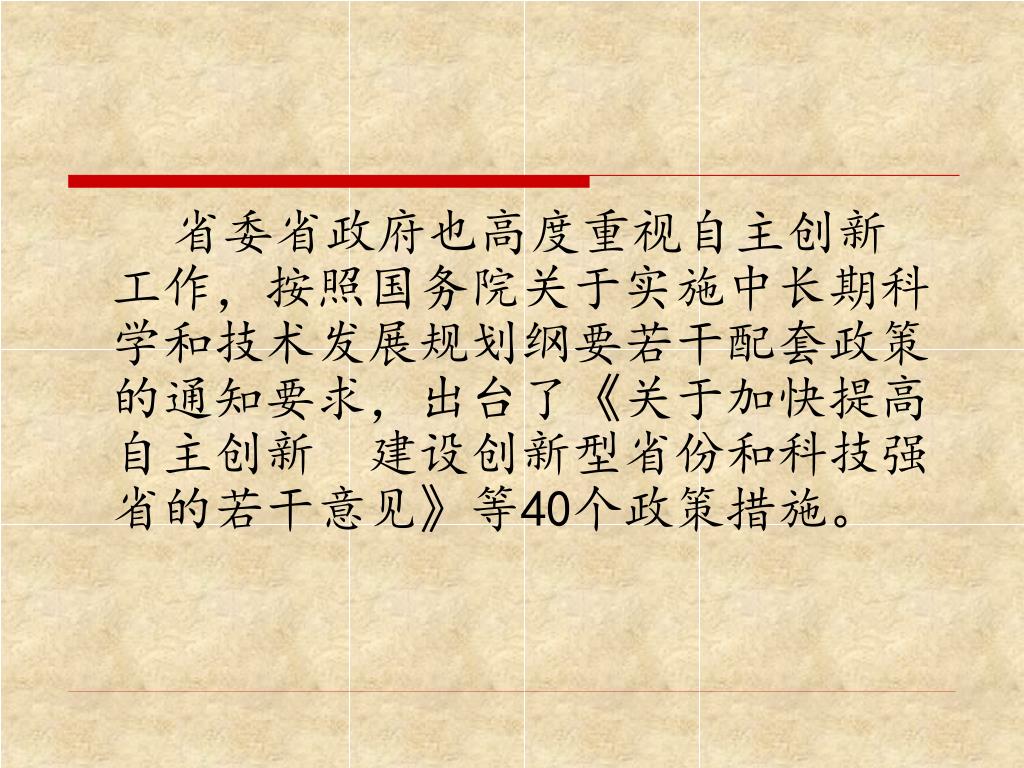 省委省政府也高度重视自主创新
工作，按照国务院关于实施中长期科
学和技术发展规划纲要若干配套政策
的通知要求，出台了《关于加快提高
自主创新　建设创新型省份和科技强
省的若干意见》等40个政策措施。